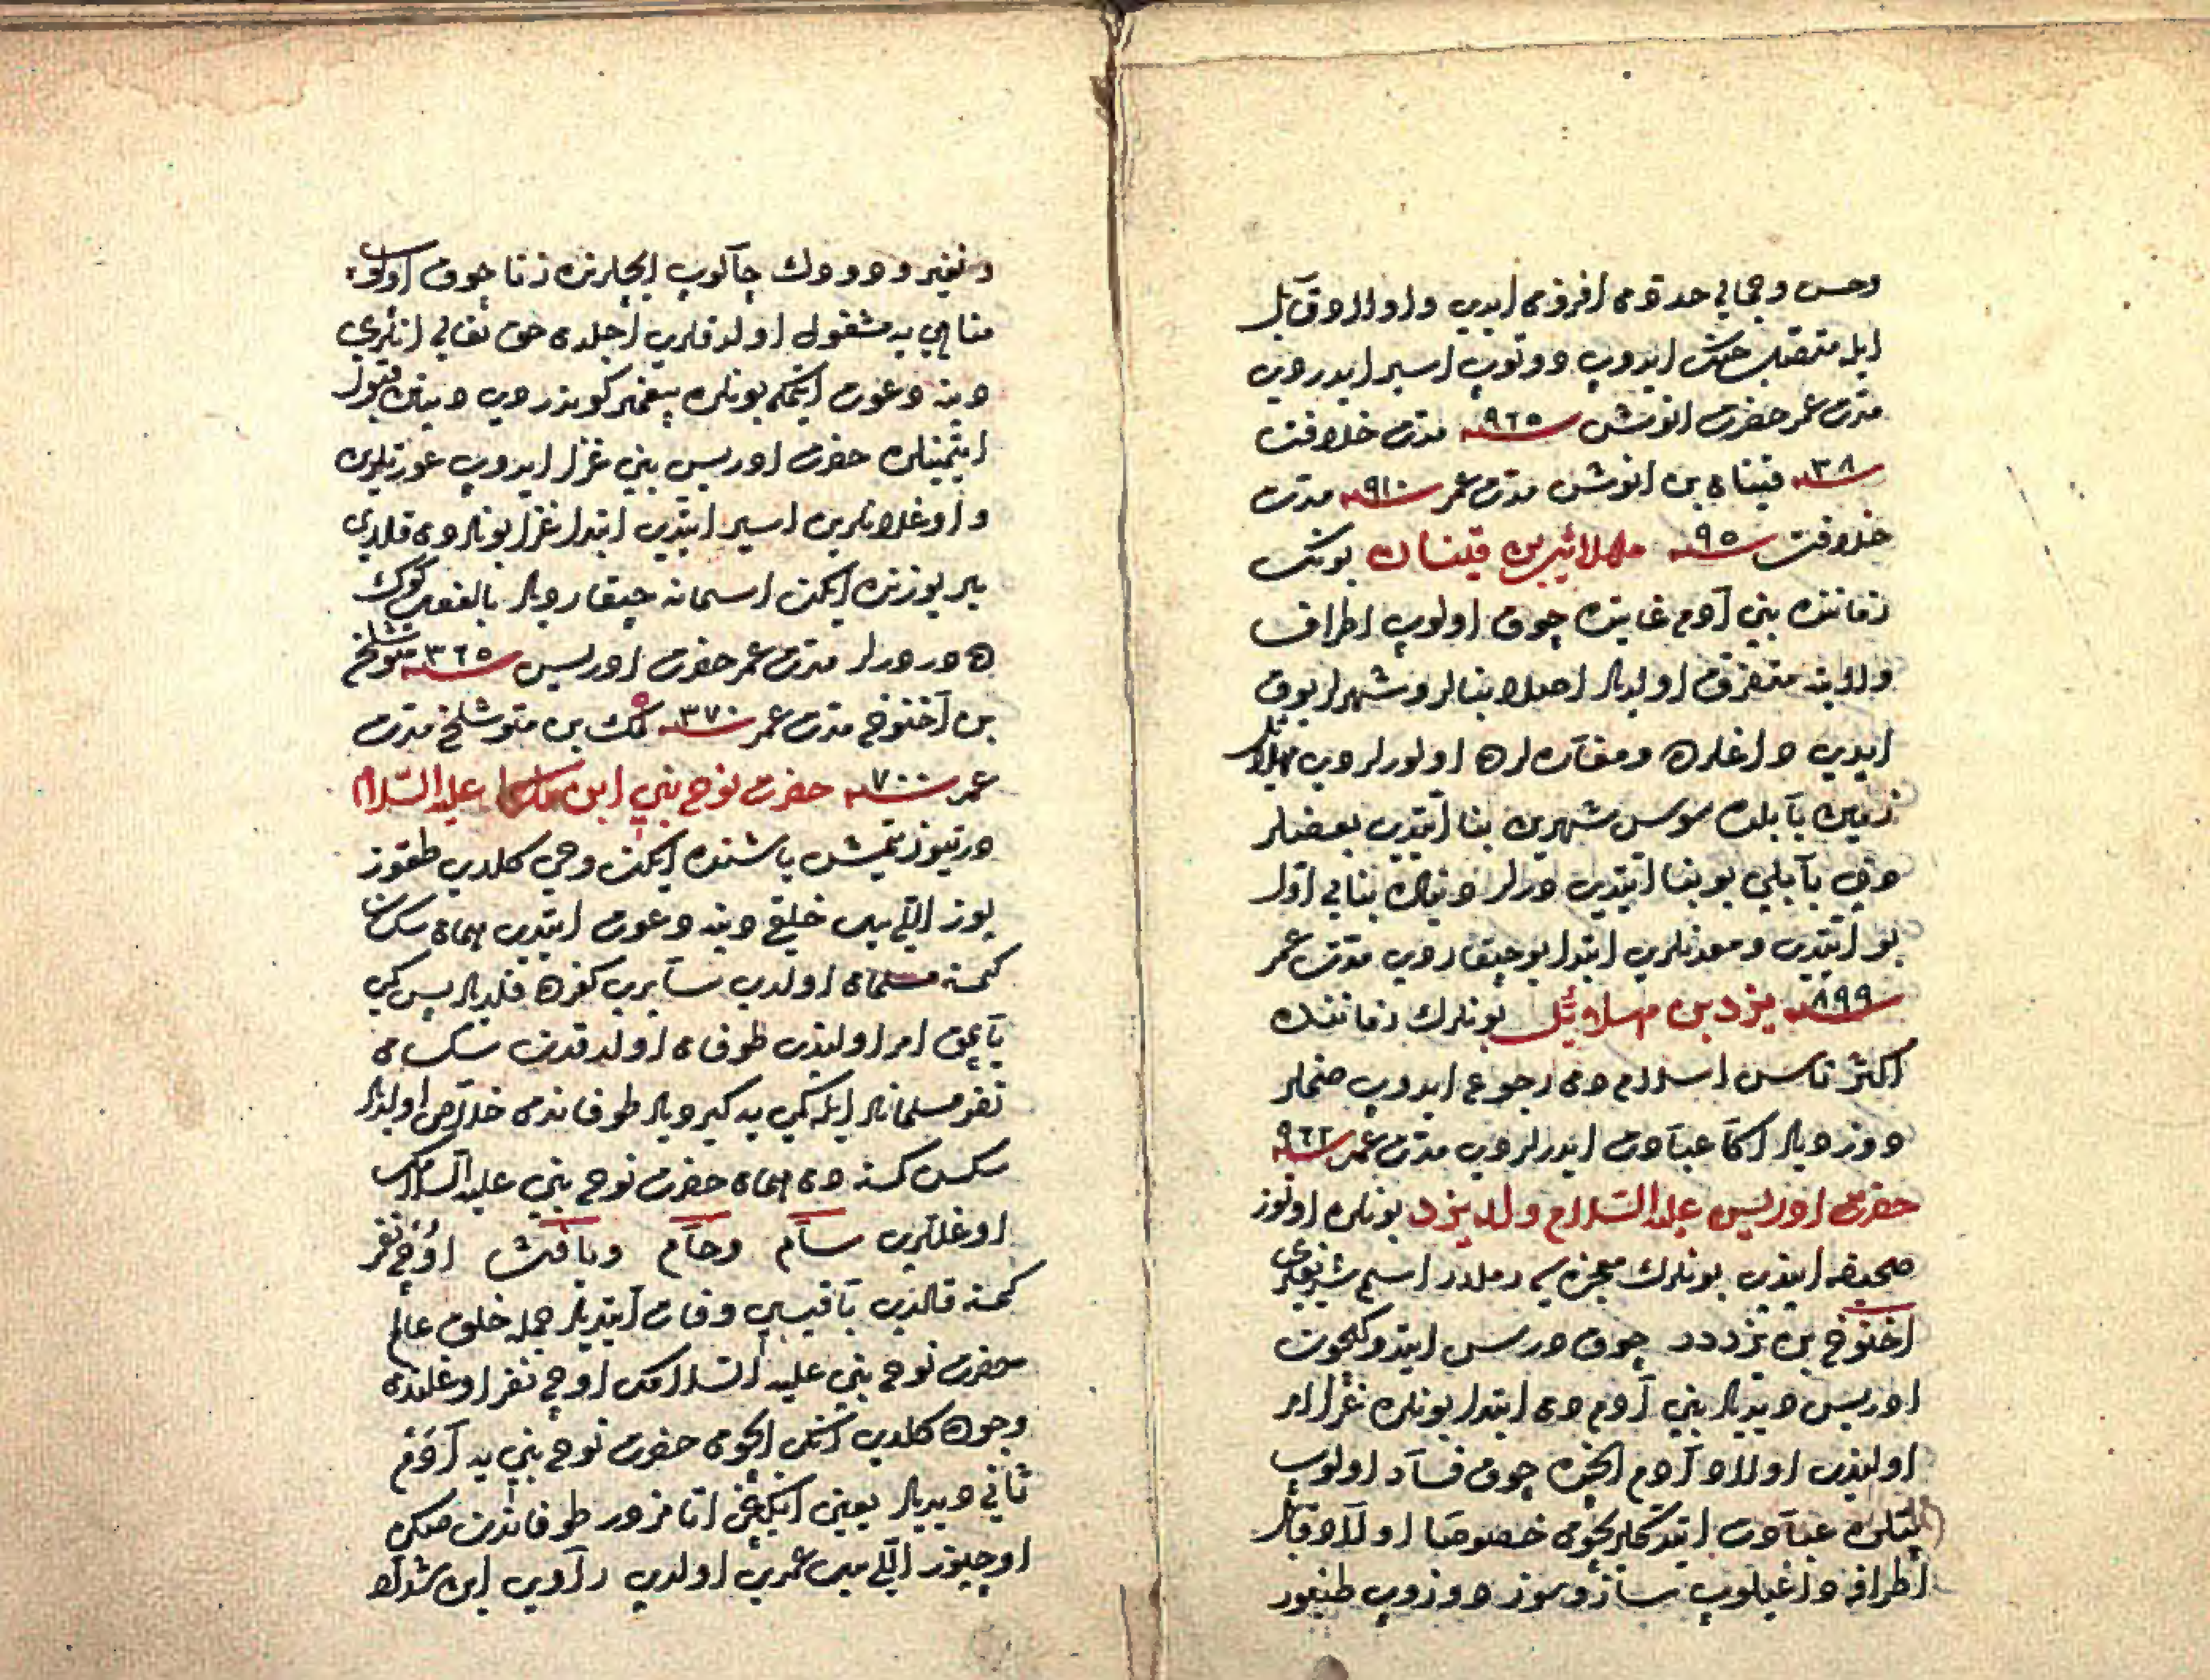 وحسن وجمالی حددن افزون ایدی واولاد قابیل
ایله متصل جنك ایدوب دوتوب اسیر ایدردی
مدت عمر حضرت انوش سنه ٩٦٥ مدت خلافت
سنه ١٣٨ قینان بن انوش مدت عمر سنه ٩١٠ مدت
خلافت سنه ٩٥ مهلائیل بن قینان بونك
زماننده بنی آدم غایتده چوق اولوب اطراف
ولایته متفرق اولدیلر اصلا بنالر وشهرلر یوق
ایدی داغلرده ومغاره لرده اولورلردی مهلائیل
زمین بابلده سوس شهرین بنا ایتدی بعضیلر
دخی بابلی بو بنا ایتدی دیرلر دنیاده بنایی اول
بو ایتدی ومعدنلری ابتدا بو چیقاردی مدت عمر
سنه ٨٩٩ یزد بن مهلائیل بونلرك زماننده
اکثر ناس اسلامدن رجوع ایدوب صنملر
دوزدیلر اکا عبادت ایدرلردی مدت عمر سنه ٩٦٢
حضرت ادریس علیه السلام ولد یزد بونلره اوتوز
صحیفه ایندی بونلرك معجزه سی رملدر اسم شریفلری
اخنوخ بن یزددر چوق درس ایتدوکیچون
ادریس دیدیلر بنی آدمدن ابتدا بونلره غزا امر
اولندی اولاد آدم ایچنده چوق فساد اولوب
بتلره عبادت ایتدکلریچون خصوصا اولاد قابیل
اطرافه داغیلوب ساز وسوز دوزوب طنبور
ونفیر ودودك چالوب ایچلرنده زنا چوق اولوب
مناهی یه مشغول اولدقلری اجلدن حق تعالی انلری
دینه دعوت ایتمکه بونلره پیغمبر کوندردی دینی قبول
ایتمینلره حضرت ادریس نبی غزا ایدوب عورتلرین
واوغلانلرین اسیر ایتدی ابتدا غزا بونلردن قالدی
یر یوزنده ایکن اسمانه چیقاردیلر بالفعل کوك
ده دورلر مدت عمر حضرت ادریس سنه ٣٦٥ متوشلخ
بن اخنوخ مدت عمر سنه ٣٧٠ لمك بن متوشلخ مدت
عمر سنه ٧٠٠ حضرت نوح نبی ابن لمك علیه السلام
درتیوز یتمش یاشنده ایکن وحی کلدی طقوز
یوز اللی ییل خلقی دینه دعوت ایتدی همان سکسان
کمسنه مسلمان اولدی سایری کفرده قلدیلر پس کمی
یاپمق امر اولندی طوفان اولدقدن سکسان
نفر مسلمانلر ایله کمی یه کیردیلر طوفاندن خلاص اولدیلر
سکسن کسنه دن همان حضرت نوح نبی علیه السلامك
اوغللری سام وحام ویافث اوچ نفر
کمسنه قالدی باقیسی وفات ایتدیلر جمله خلق عالم
حضرت نوح نبی علیه السلامك اوچ نفر اوغلندن
وجوده کلدی انك ایچون حضرت نوح نبی یه آدم
ثانی دیدیلر یعنی ایکنجی اتامزدر طوفاندن صکره
اوچیوز اللی ییل عمری اولدی راوی ابن شداد